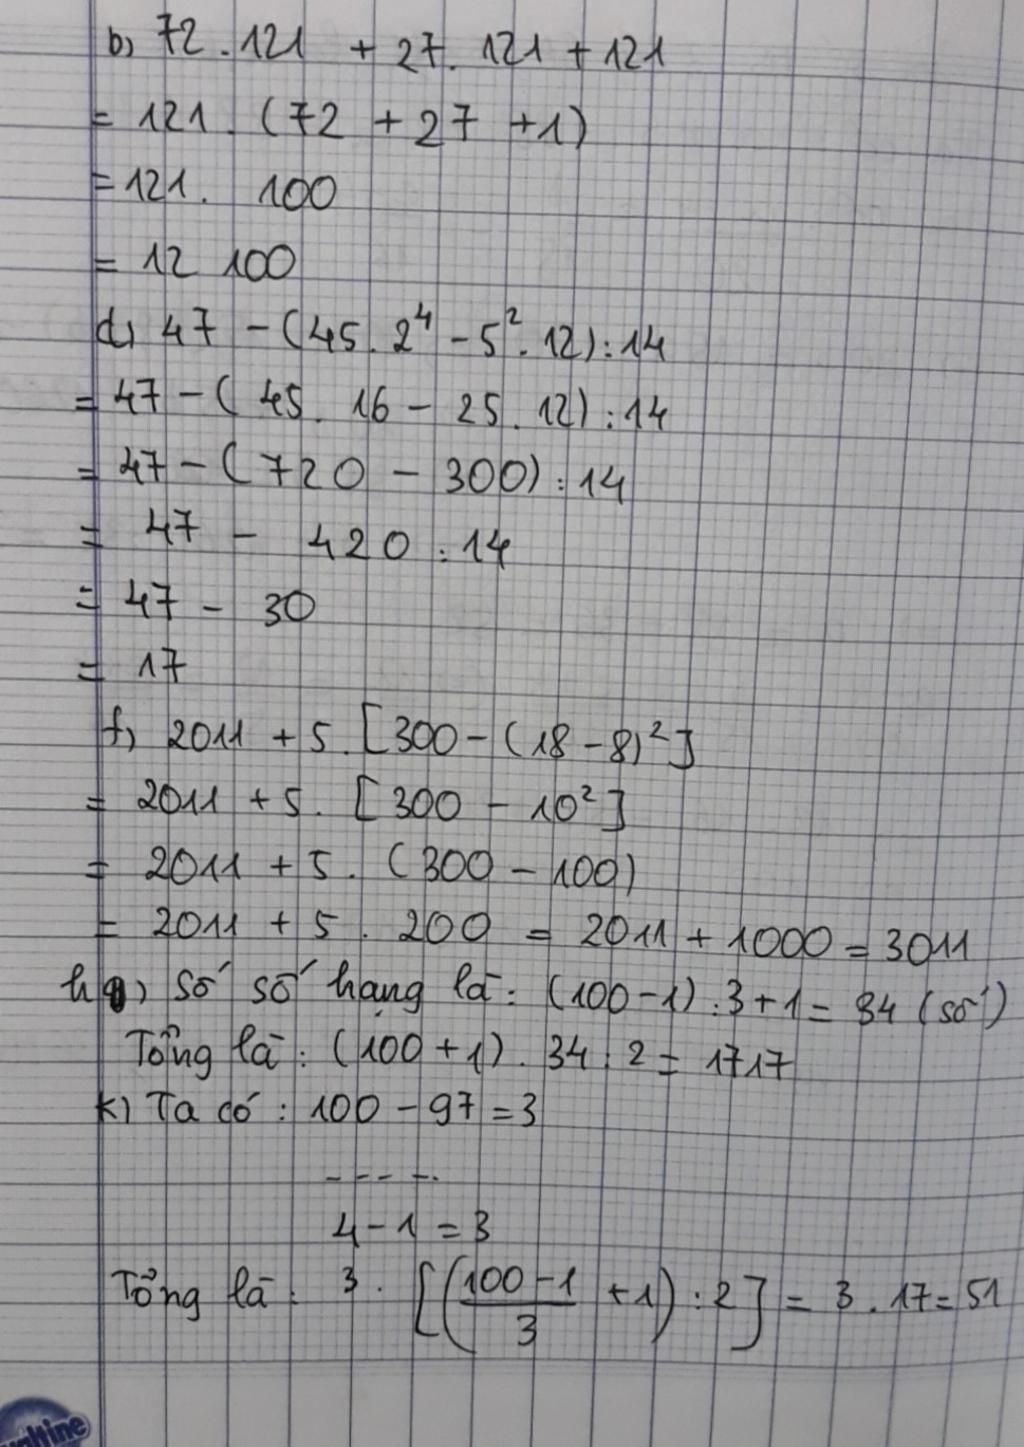 b) 72 . 121 + 27 . 121 + 121
= 121 . (72 + 27 + 1)
= 121 . 100
= 12 100
d) 47 - (45 . 2⁴ - 5² . 12) : 14
= 47 - (45 . 16 - 25 . 12) : 14
= 47 - (720 - 300) : 14
= 47 - 420 : 14
= 47 - 30
= 17
f) 2011 + 5 . [300 - (18 - 8)²]
= 2011 + 5 . [300 - 10²]
= 2011 + 5 . (300 - 100)
= 2011 + 5 . 200 = 2011 + 1000 = 3011
h) số số hạng là : (100 - 1) : 3 + 1 = 34 (số)
Tổng là : (100 + 1) . 34 : 2 = 1717
k) Ta có : 100 - 97 = 3
- - - - - .
4 - 1 = 3
Tổng là : 3 . [((100 - 1)/3 + 1) : 2] = 3 . 17 = 51